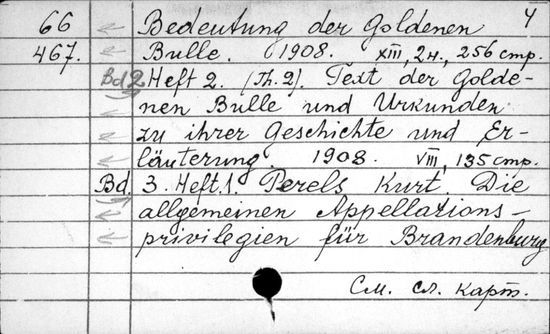 4
66 Bedeutung der Goldenen
467. Bulle. 1908. XIII, 2н., 256 стр.
Bd 2 Heft 2. (Th. 2). Text der Golde-
nen Bulle und Urkunden
zu ihrer Geschichte und Er-
läuterung. 1908. VIII, 135 стр.
Bd. 3. Heft. 1. Perels Kurt. Die
allgemeinen Appellations-
privilegien für Brandenburg
См. сл. карт.